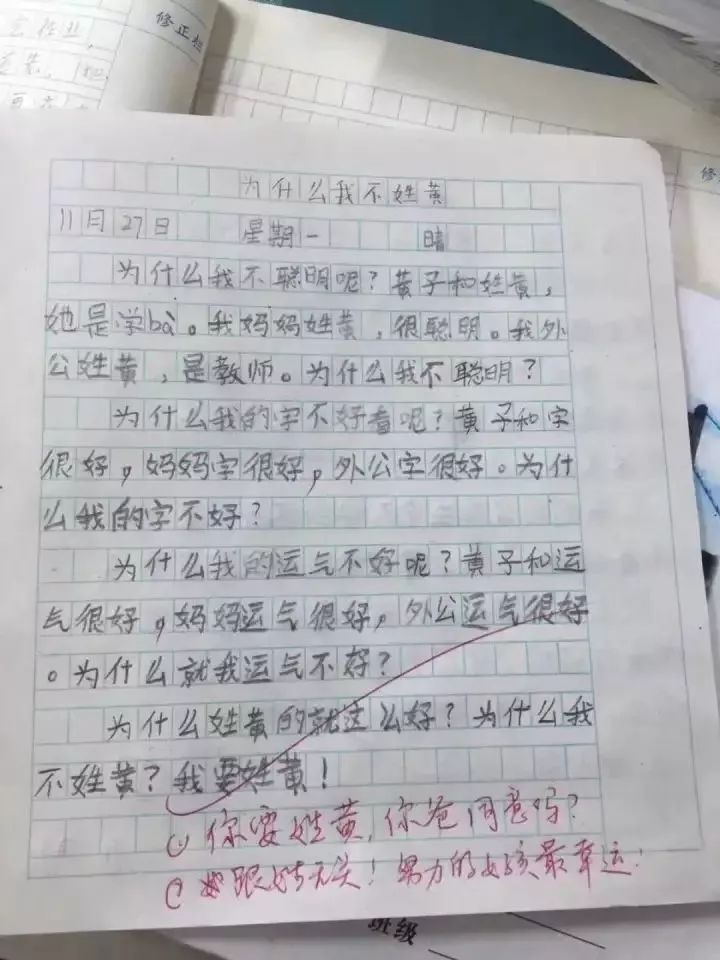 修正栏
为什么我不姓黄
11月27日 星期一 晴
为什么我不聪明呢？黄子和姓黄，
她是学bà。我妈妈姓黄，很聪明。我外
公姓黄，是教师。为什么我不聪明？
为什么我的字不好看呢？黄子和字
很好，妈妈字很好，外公字很好。为什
么我的字不好？
为什么我的运气不好呢？黄子和运
气很好，妈妈运气很好，外公运气很好
。为什么就我运气不好？
为什么姓黄的就这么好？为什么我
不姓黄？我要姓黄！
你要姓黄，你爸同意吗？
跟姓无关！努力的女孩最幸运！
班级